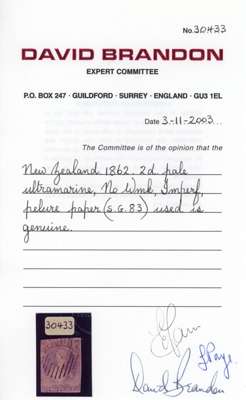 No. 30433
DAVID BRANDON
EXPERT COMMITTEE
P.O. BOX 247 · GUILDFORD · SURREY · ENGLAND · GU3 1EL
Date 3-11-2003
The Committee is of the opinion that the
New Zealand 1862. 2d pale
ultramarine, No Wmk, Imperf,
pelure paper (S.G.83) used is
genuine.
30433
David Brandon